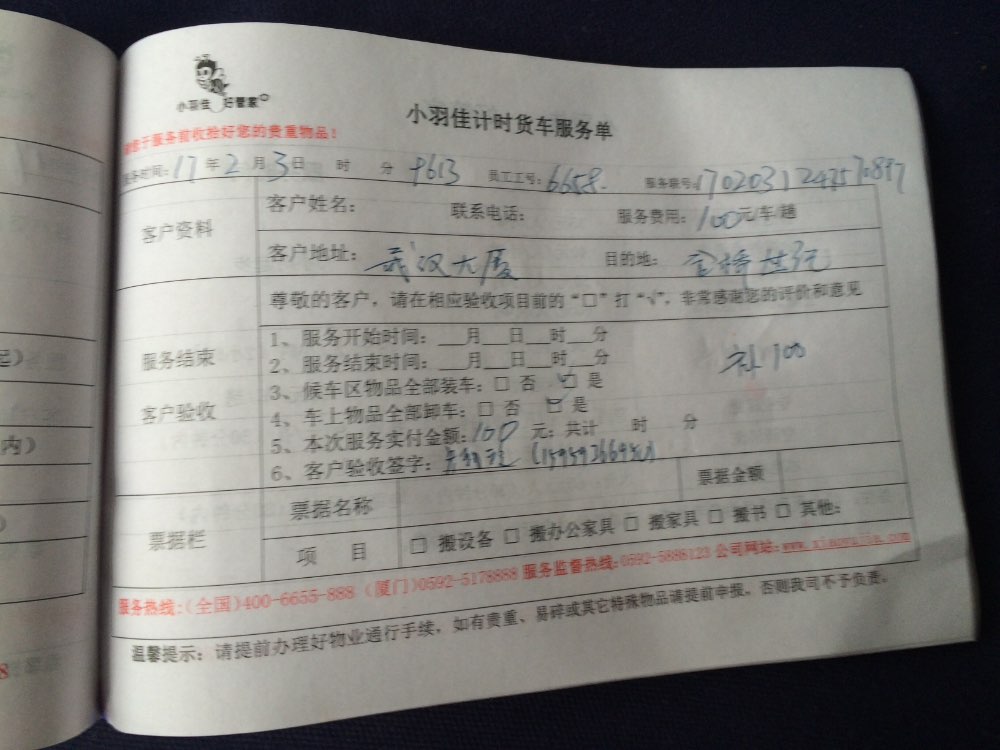 小羽佳 好管家
小羽佳计时货车服务单
于服务前收捡好您的贵重物品!
务时间: 17 年 2 月 3 日 时 分 9613 员工工号: 6658. 服务联号:
客户资料
客户姓名: 联系电话: 服务费用: 100元/车/趟
客户地址: 武汉大厦 目的地:
尊敬的客户,请在相应验收项目前的“□”打“√”,非常感谢您的评价和意见
服务结束
客户验收
1、服务开始时间: ___月___日___时___分
2、服务结束时间: ___月___日___时___分
100
3、候车区物品全部装车: □ 否 ☑ 是
4、车上物品全部卸车: □ 否 □ 是
5、本次服务实付金额: 100 元; 共计 时 分
6、客户验收签字:
票据栏
票据名称 票据金额
项 目 □ 搬设备 □ 搬办公家具 □ 搬家具 □ 搬书 □ 其他:
服务热线:(全国)400-6655-888 (厦门)0592-5178888 服务监督热线:0592-5888123 公司网站:www.xiaoyujia.com
温馨提示: 请提前办理好物业通行手续,如有贵重、易碎或其它特殊物品请提前申报,否则我司不予负责。
起)
内)
)
8